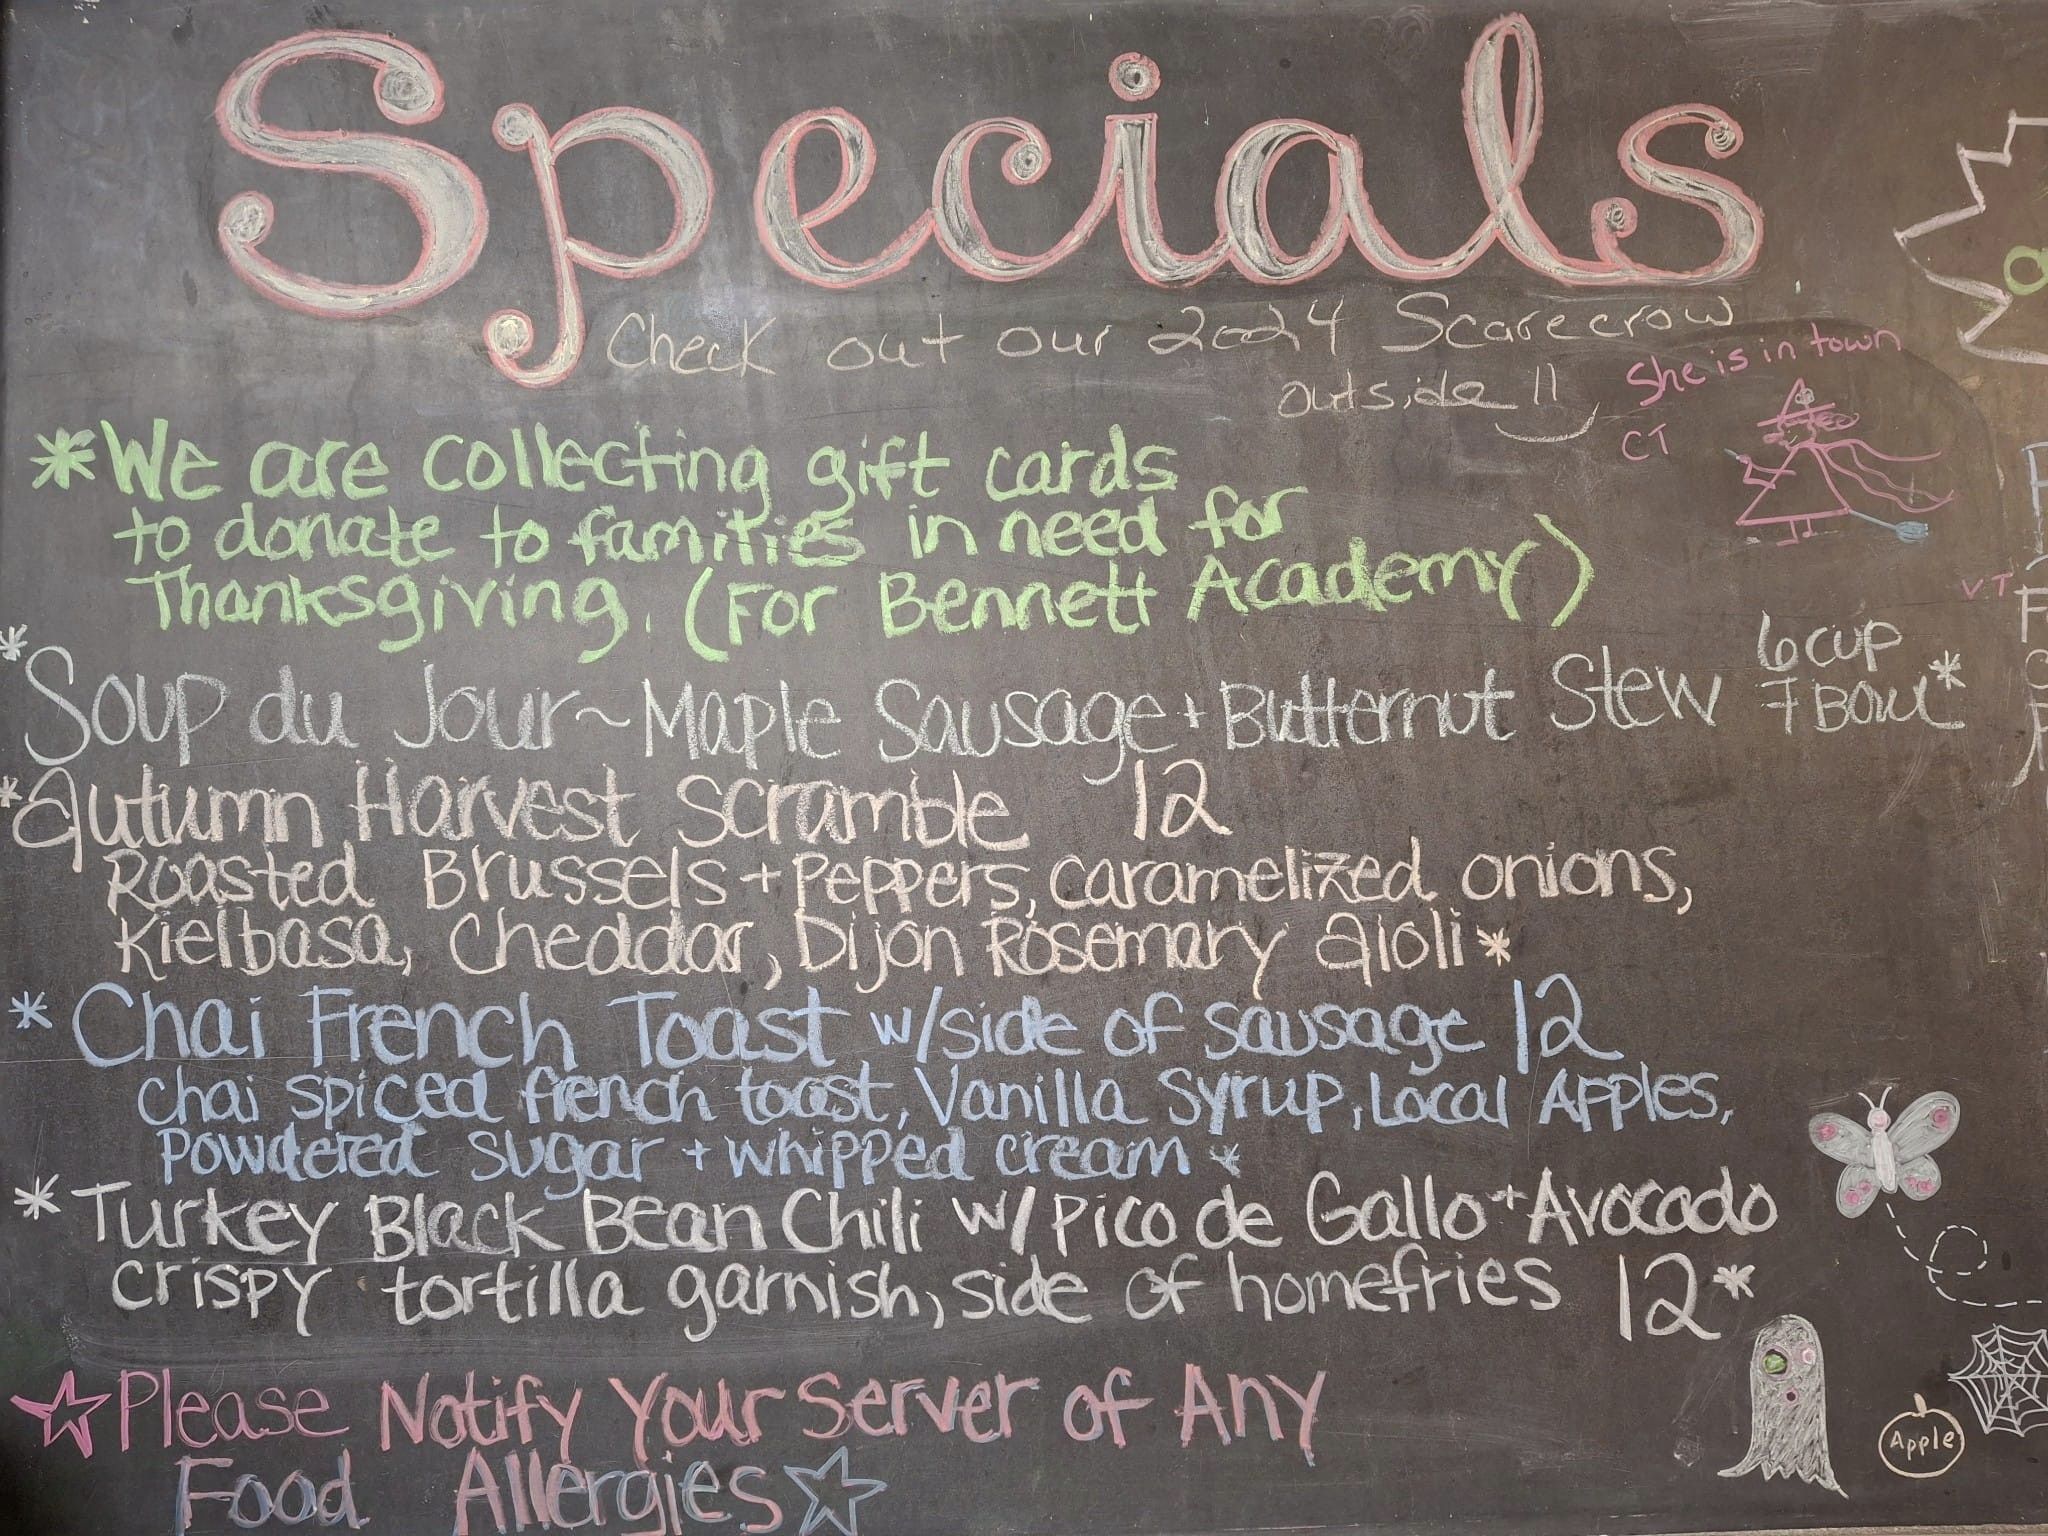 Specials
Check out our 2024 Scarecrow
outside!!
She is in town
CT
*We are collecting gift cards
to donate to families in need for
Thanksgiving. (For Bennett Academy)
VT
*Soup du Jour~Maple Sausage + Butternut Stew 6 cup
7 Bowl*
*Autumn Harvest Scramble 12
Roasted Brussels + Peppers, caramelized onions,
Kielbasa, Cheddar, Dijon Rosemary aioli*
* Chai French Toast w/side of sausage 12
chai spiced french toast, Vanilla Syrup, Local Apples,
powdered sugar + whipped cream *
* Turkey Black Bean Chili w/ Pico de Gallo + Avocado
crispy tortilla garnish, side of homefries 12*
☆Please Notify Your Server of Any
Food Allergies☆
Apple